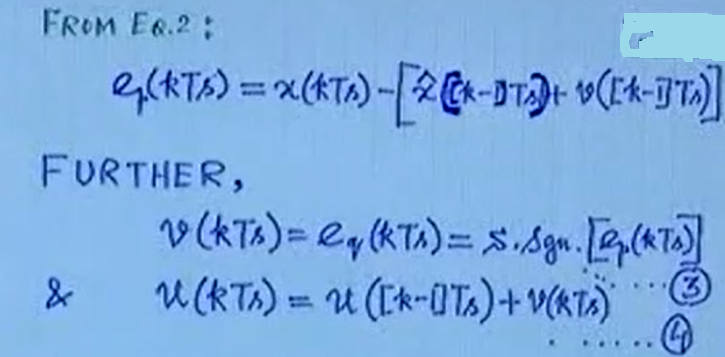 FROM EQ.2:
e_p(kTs) = x(kTs) - [x̂([k-1]Ts) + v([k-1]Ts)]
FURTHER,
v(kTs) = e_q(kTs) = s.sgn.[e_p(kTs)]
......(3)
& u(kTs) = u([k-1]Ts) + v(kTs)
......(4)